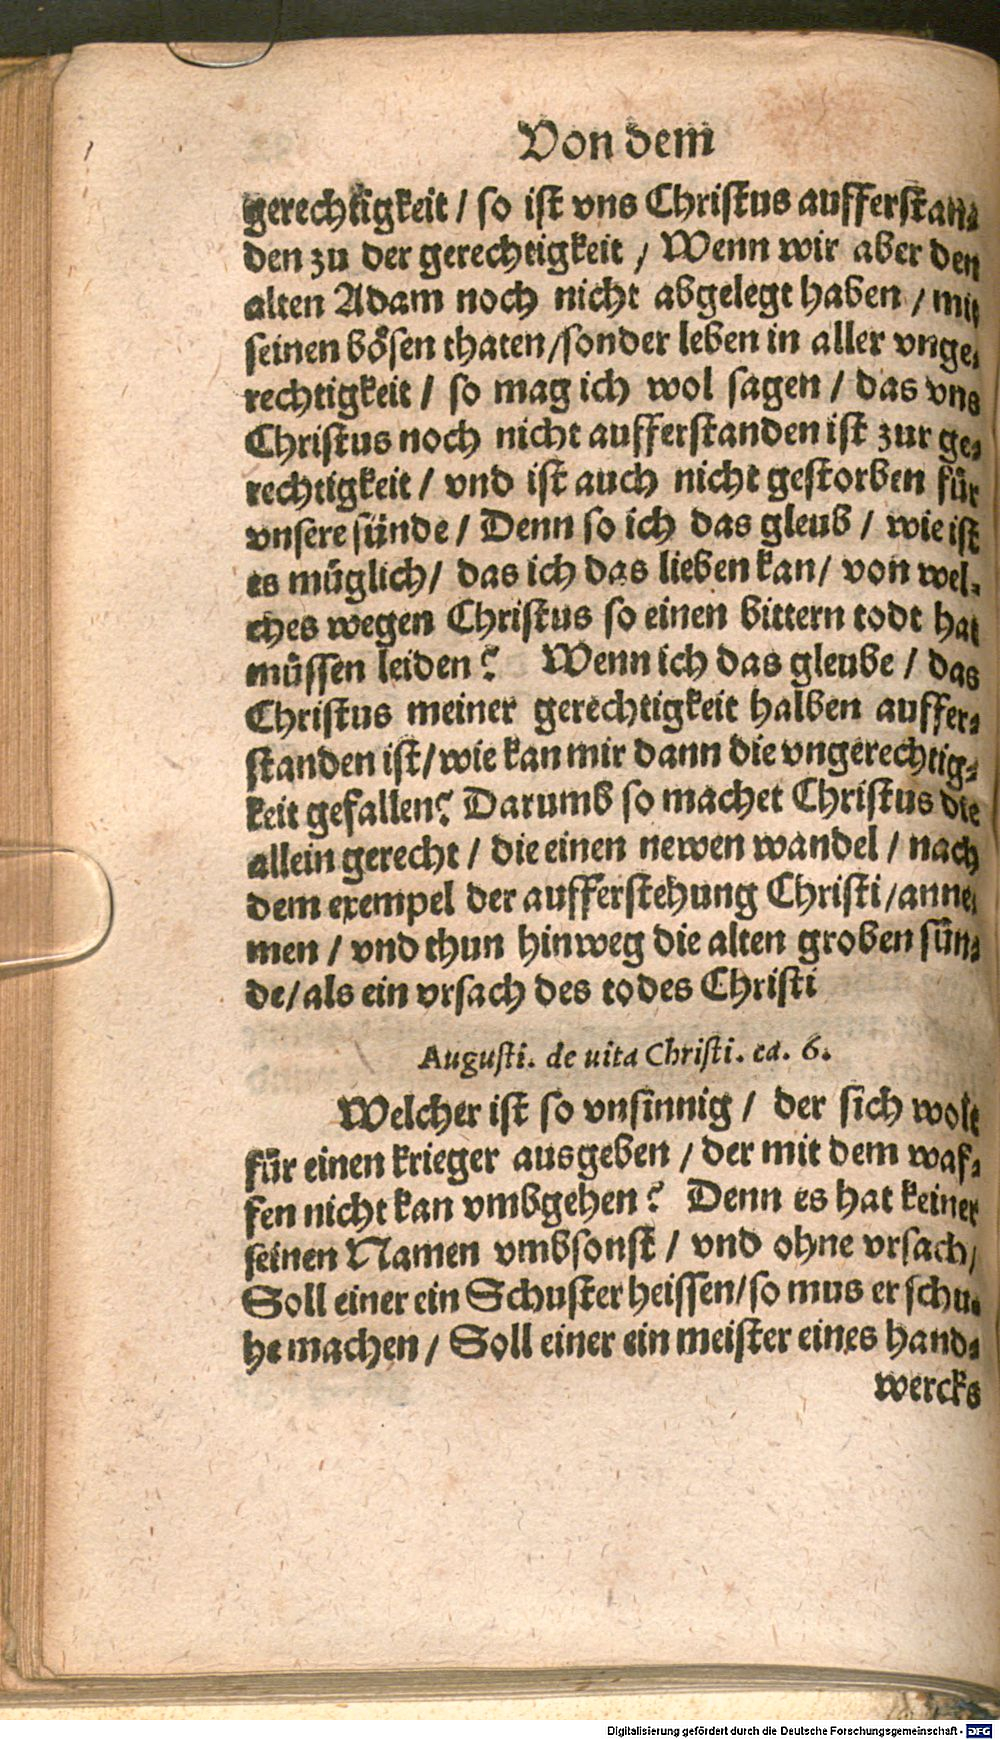 Von dem
gerechtigkeit / so ist vns Christus aufferstan-
den zu der gerechtigkeit / Wenn wir aber den
alten Adam noch nicht abgelegt haben / mit
seinen bösen thaten/sonder leben in aller vnge-
rechtigkeit / so mag ich wol sagen / das vns
Christus noch nicht aufferstanden ist zur ge-
rechtigkeit / vnd ist auch nicht gestorben für
vnsere sünde / Denn so ich das gleub / wie ist
es müglich/ das ich das lieben kan/ von wel-
ches wegen Christus so einen bittern todt hat
müssen leiden? Wenn ich das gleube / das
Christus meiner gerechtigkeit halben auffer-
standen ist/wie kan mir dann die vngerechtig-
keit gefallen? Darumb so machet Christus die
allein gerecht / die einen newen wandel / nach
dem exempel der aufferstehung Christi/anne-
men / vnd thun hinweg die alten groben sün-
de/als ein vrsach des todes Christi
Augusti. de uita Christi. ca. 6.
Welcher ist so vnsinnig / der sich wolt
für einen krieger ausgeben / der mit dem waf-
fen nicht kan vmbgehen? Denn es hat keiner
seinen Namen vmbsonst / vnd ohne vrsach/
Soll einer ein Schuster heissen/so mus er schu-
he machen / Soll einer ein meister eines hand-
wercks
Digitalisierung gefördert durch die Deutsche Forschungsgemeinschaft - DFG